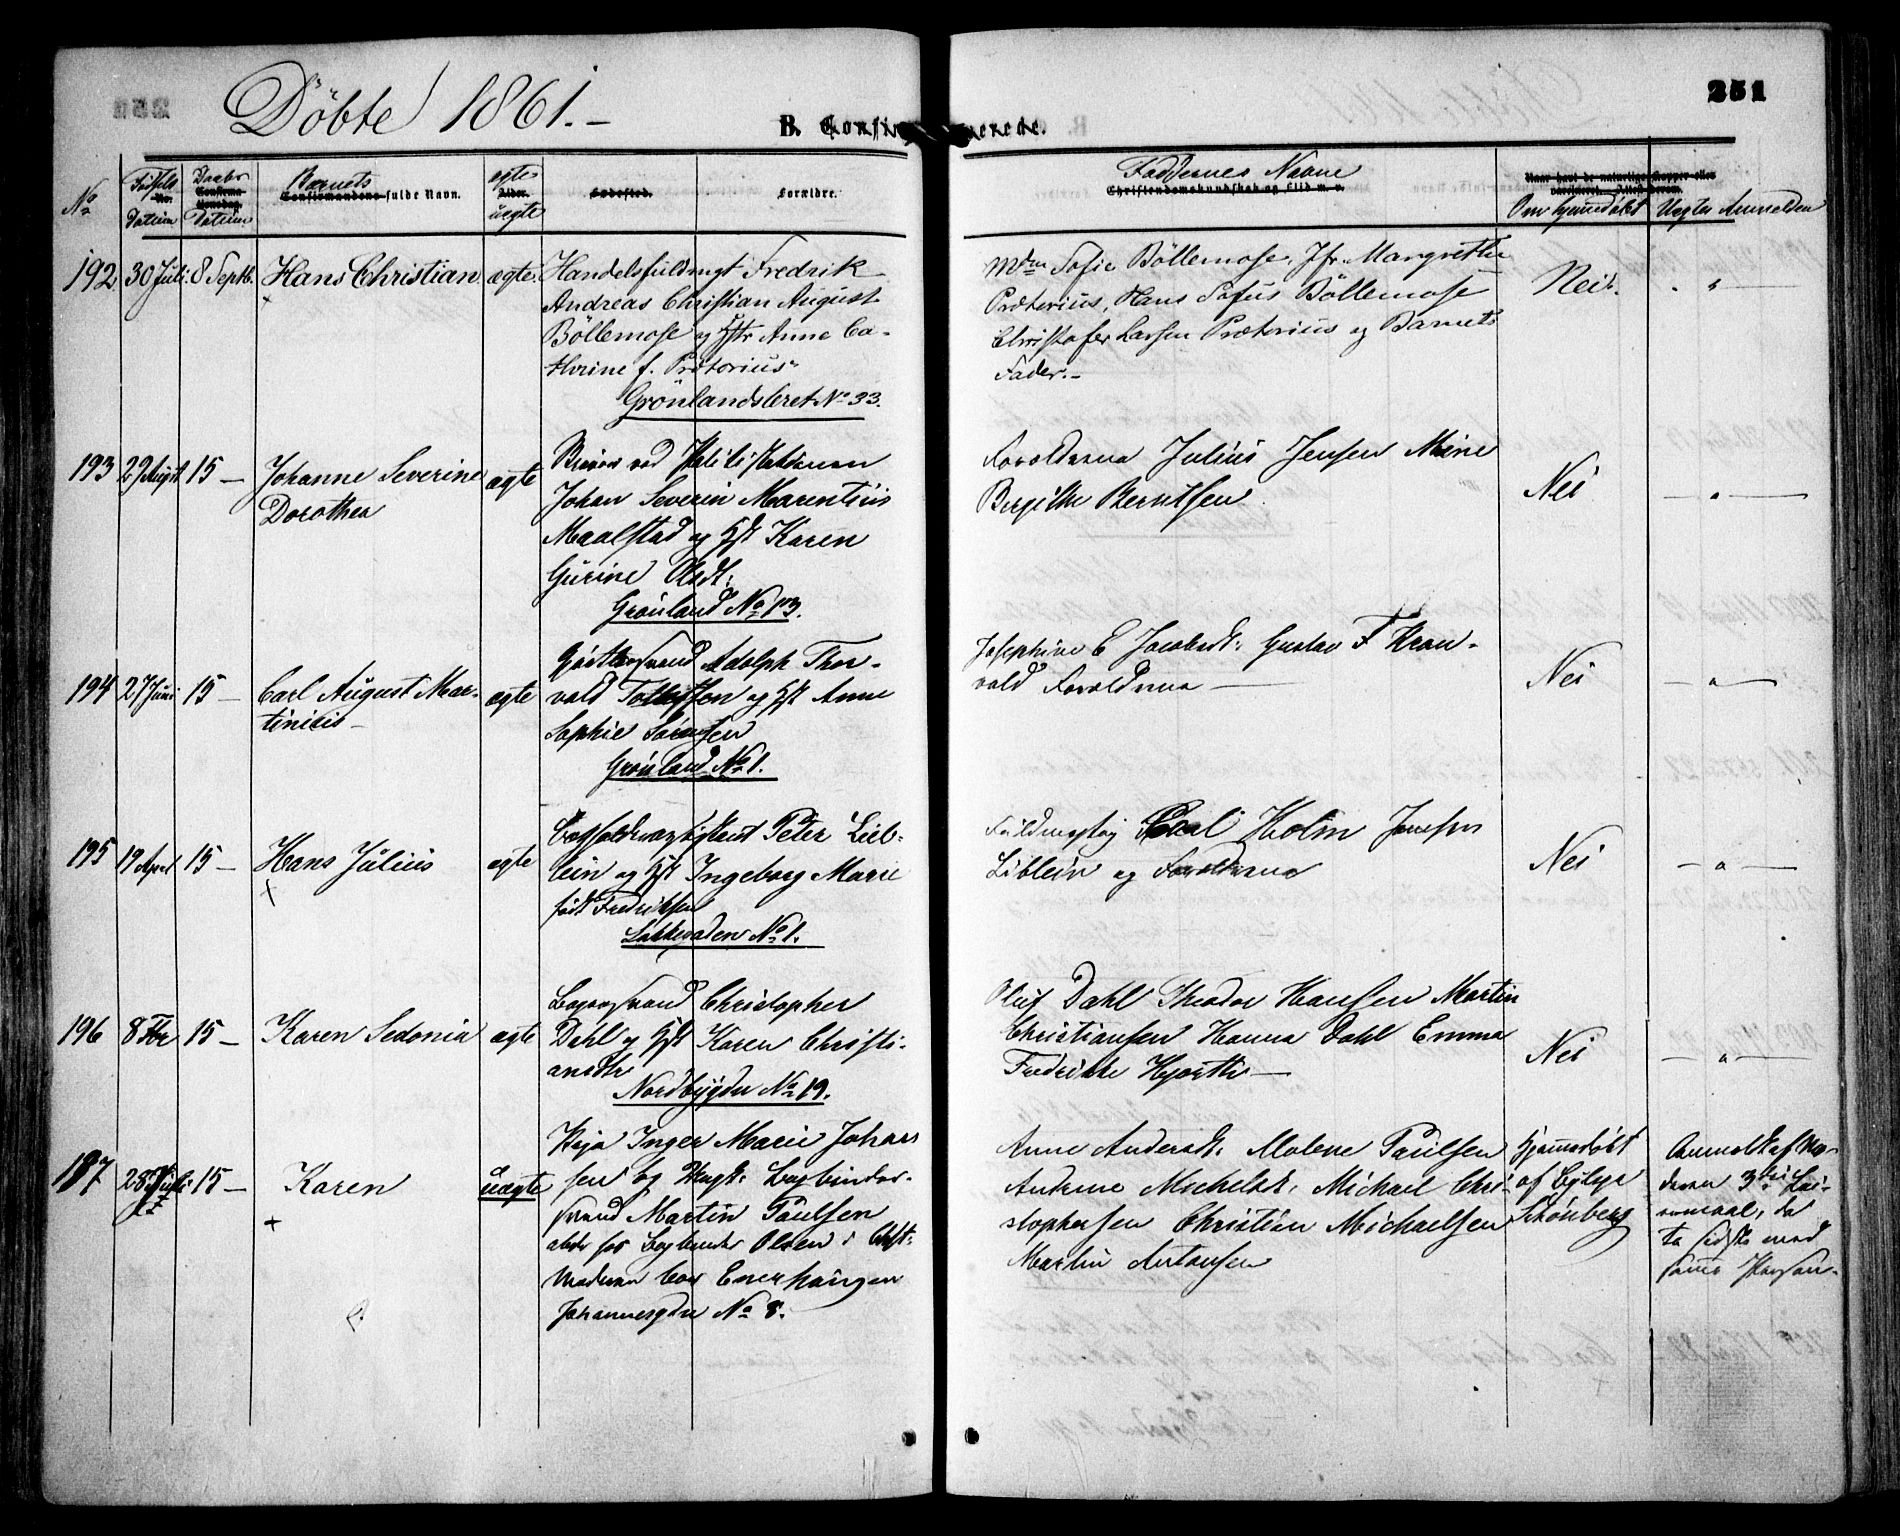 Döbte 1861.-
B. Confirmerede.
251
No
Fødsels Datum
Daabs Datum
Barnets fulde Navn.
ægte uægte
Fødested.
Forældre.
Faddernes Navne
Om hjemmedøbt
Uegtes Anmelden
192 30 Juli 8 Septb. Hans Christian ægte. Handelsfuldmgt Fredrik
Andreas Christian August
Böllemose og Hstr Anne Ca-
thrine f. Prætorius
Grönlandsleret No 33.
Mdm Sofie Böllemose, Jfr. Margrethe
Prætorius, Hans Sofus Böllemose
Christofer Larsen Prætorius og Barnets
Fader.-
Nei.
193 29 Augst 15 — Johanne Severine
Dorothea
ægte
ved
Johan Severin Marentius
Maalstad og Hst Karen
Gurine Olsdt:
Grönland No 13.
Forældrene Julius Jensen Mine
Berntsen
Nei
194 27 Juni 15 — Carl August Mar-
tinius —
ægte
Adolph Thor-
vald Tollefsen og Hst Anne
Sophie Sörensen
Grönland No 1.
Josephine E Jacobsdt: Gustav F Kron-
vold Forældrene —
Nei
195 19 April 15 — Hans Julius
ægte
Peter Lieb-
lein og Hst Ingeborg Marie
födt Fredriksen
Lakkegaden No 1.
Fuldmægtig Carl Holm Jensen
Liblein og Forældrene
Nei
196 8 15 — Karen Sedonia ægte
Christopher
Dahl og Hst Karen Christi-
ansdtr
Nordbygdn No 19.
Oluf Dahl Theodor Hansen Martin
Christiansen Hanna Dahl Emma
Fredrikke Hjorth —
Nei
197 28 Juli 15 — Karen
uægte
Pige Inger Marie Johan
sen og Ungk: Bogbinder-
svend Martin Paulsen
Olsen i
Moderen Enerhaugen
Johannesgdn No 8.
Anne Andersdt. Malene Paulsen
Andrine Michelsdt. Michael Chri-
stophersen Christian Michaelsen
Martin Antonsen
Hjemmedøbt
af
Schönberg
Anmeldt af Mo-
deren 3die Lei-
ermaal, de
to sidste med
samme Person.